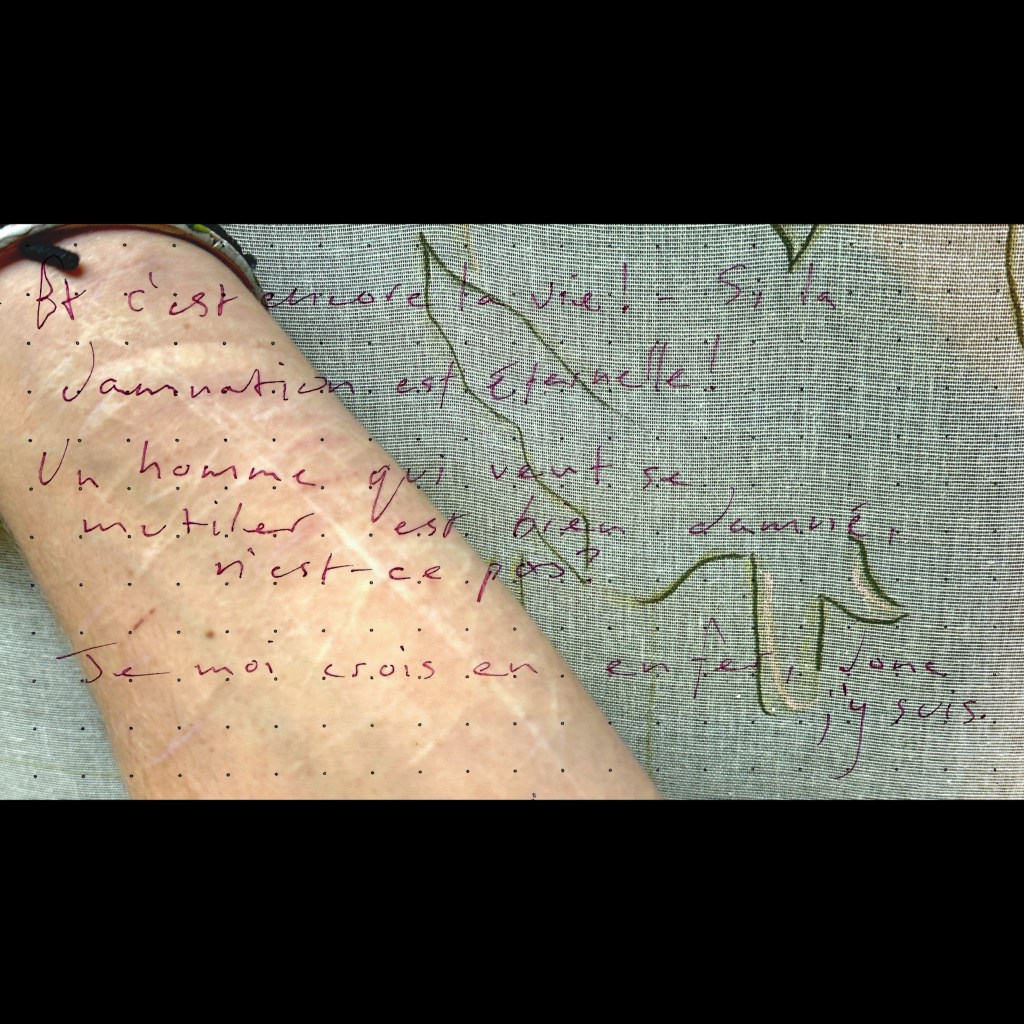 Et c'est encore la vie! - Si la
damnation est éternelle!
Un homme qui veut se
mutiler est bien damné,
n'est-ce pas?
Je moi crois en enfer, donc
j'y suis.